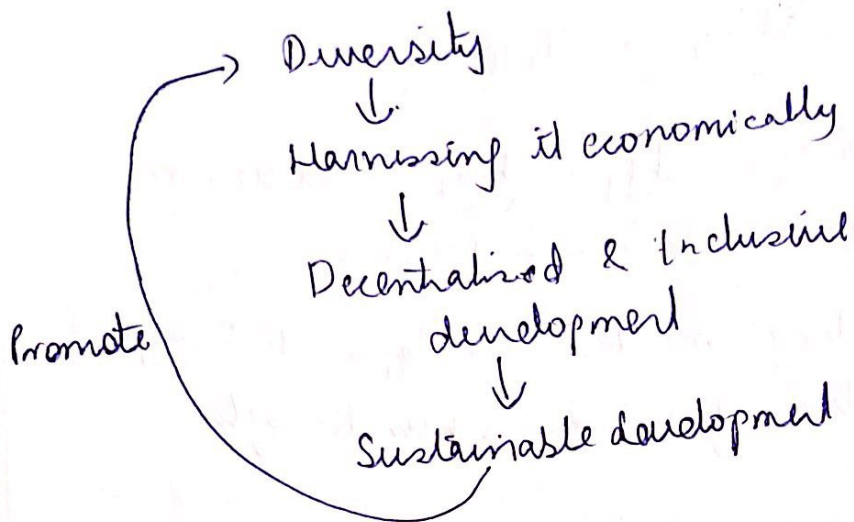 Diversity
Harnessing it economically
Decentralised & Inclusive
development
Promote
Sustainable development